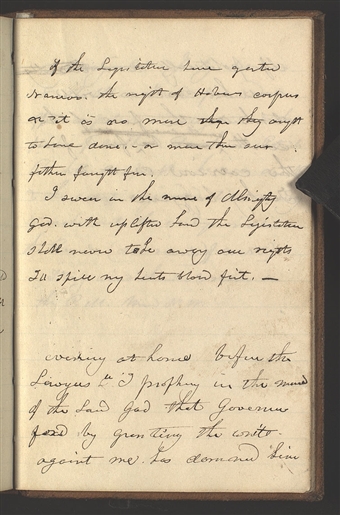 If the Legislature have granted
Nauvoo. the right of Habeus corpus
it is no more than they ought
to have done. - or more than our
fathers fought for.
I swear in the name of Almighty
God. with uplifted hand the Legislature
shall never take away our rights
I'll spill my hearts blood first. —
evening at home before the
Lawyers "I prophecy in the name
of the Lord God that Governor
ford by granting the writ
against me. has damned him